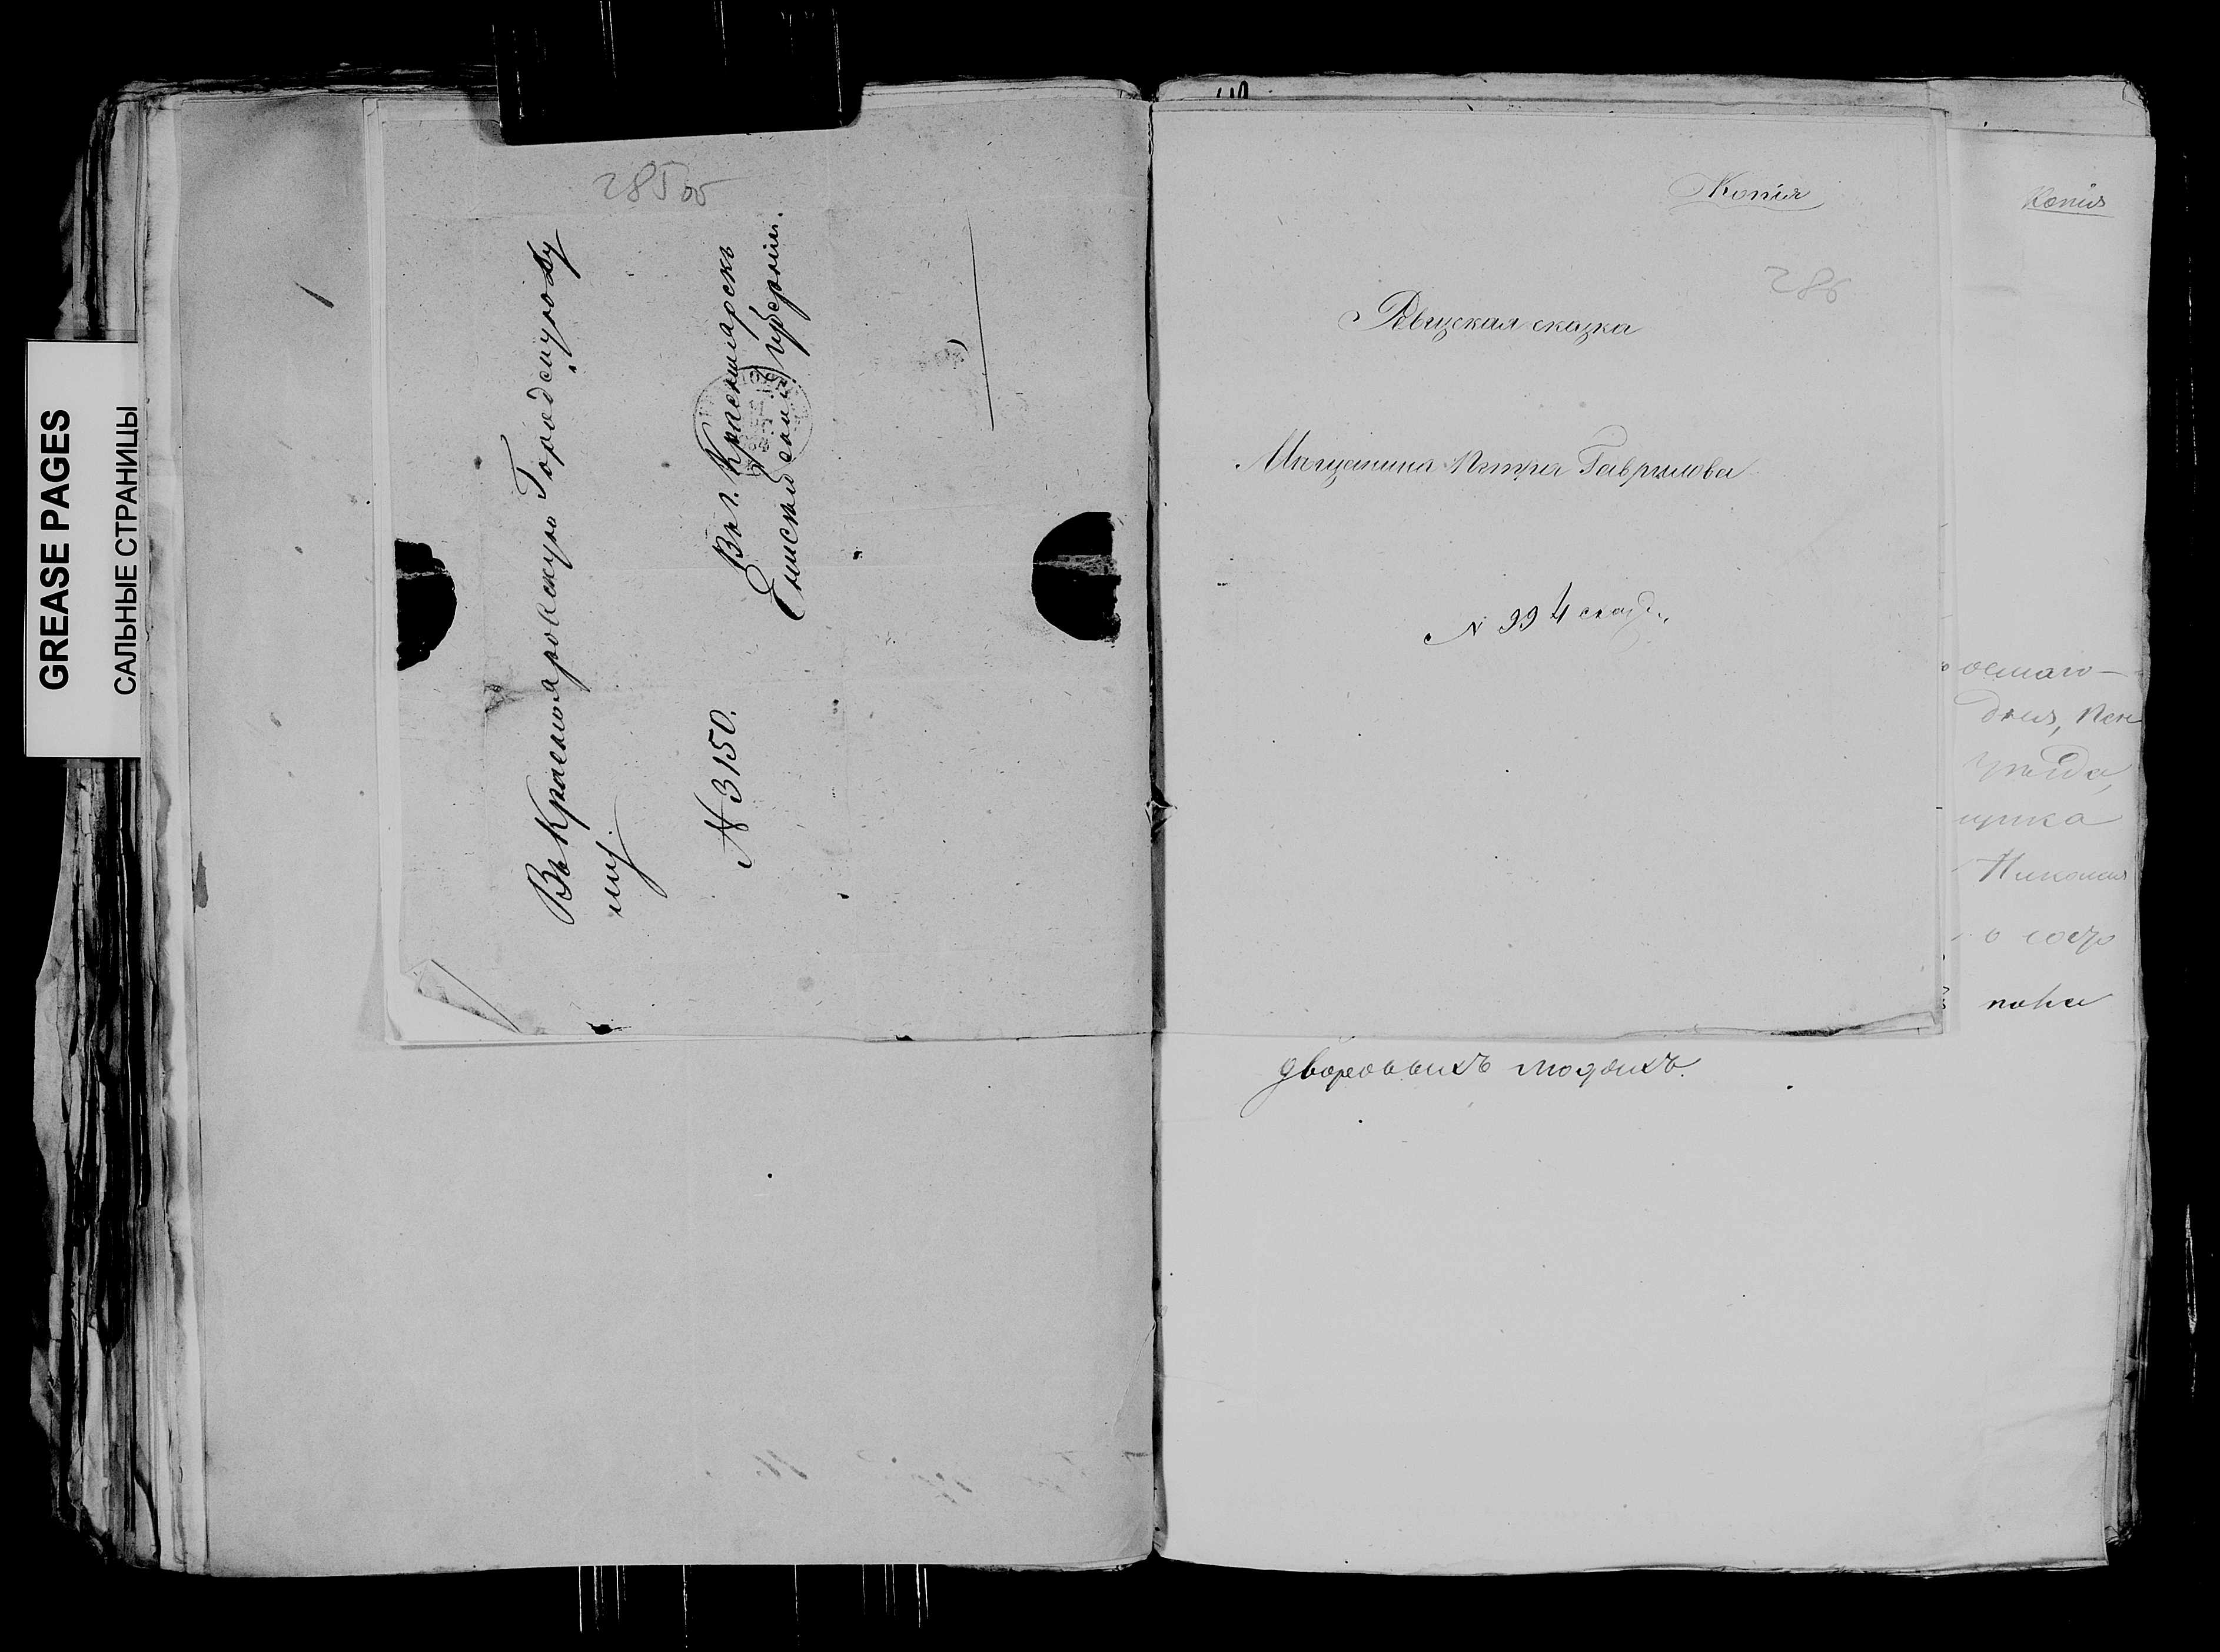 GREASE PAGES
САЛЬНЫЕ СТРАНИЦЫ
285 об
Въ Красноярскую Городскую Ду
му.
N 3150.
Въ г. Красноярскъ
Енисейской губернии.
Копія
286
Ревизская сказка
Мѣщанина Петра Гаврилова
N 994
дворовыхъ людяхъ.
Копія
осьмаго
дня,
уѣзда,
щика
Николая
о состо